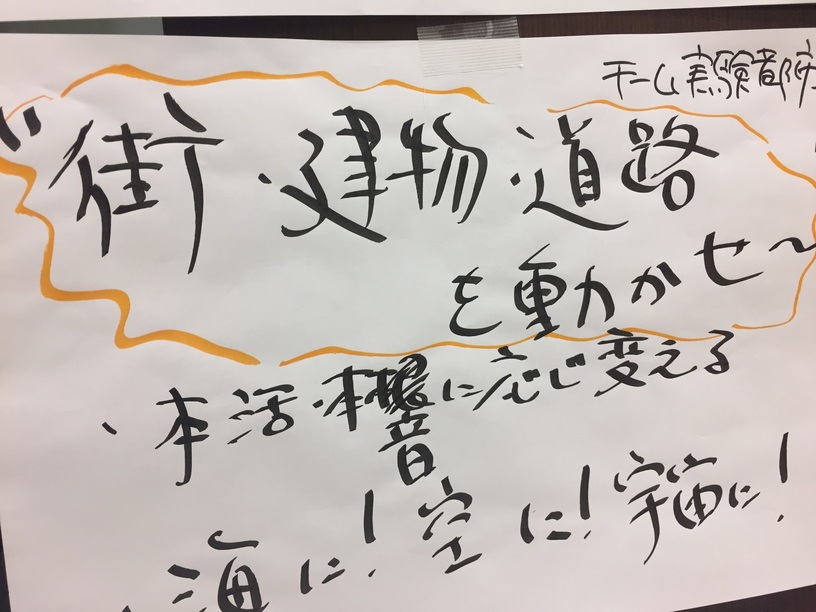 チーム実験都市
"街・建物・道路
を動かせ〜
・本活・本音に応じ変える
海に！空に！宇宙に！